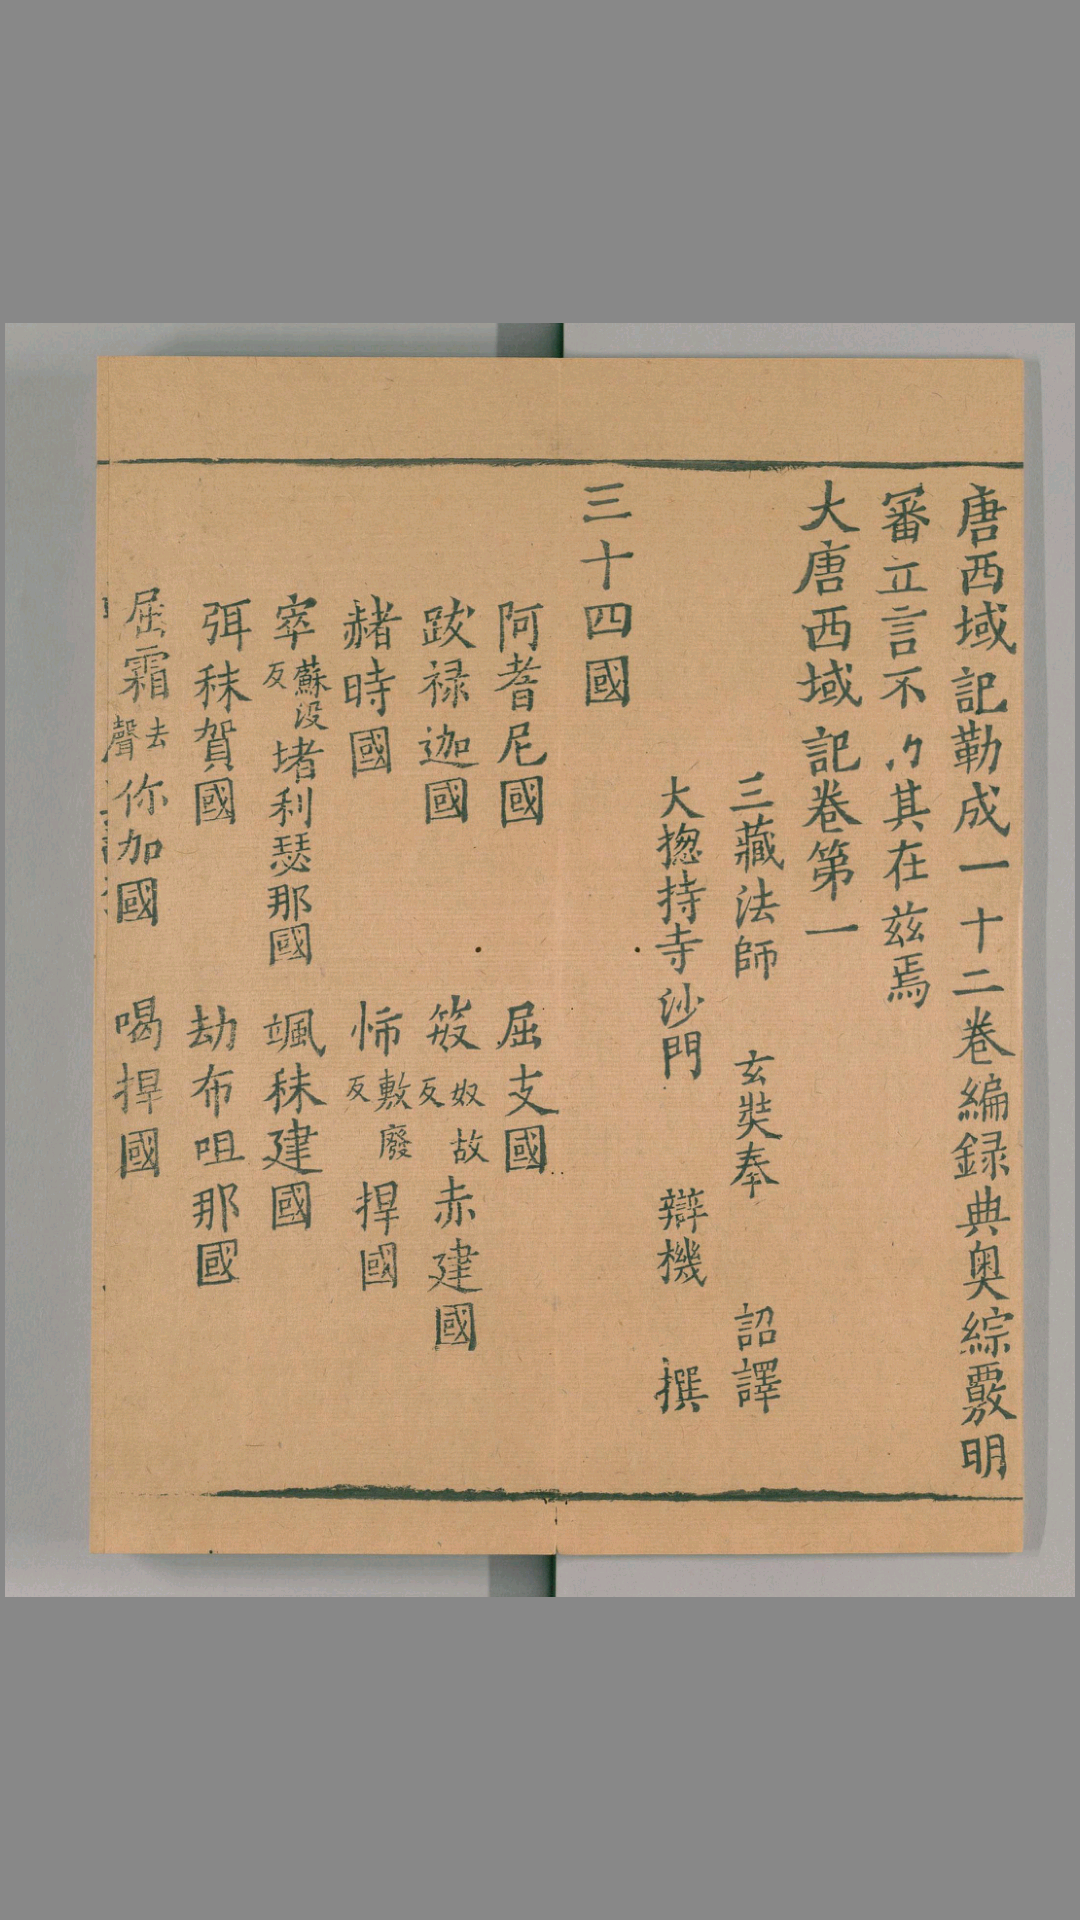 唐西域記勒成一十二卷編録典奥綜覈明
審立言不𠛬其在兹焉
大唐西域記卷第一
三藏法師 玄奘奉 詔譯
大揔持寺沙門 辯機 撰
三十四國
阿耆尼國 屈支國
跋禄迦國 笯奴故反赤建國
赭時國 㤄敷廢反捍國
窣蘇没反堵利瑟那國 颯秣建國
弭秣賀國 劫布呾那國
屈霜去聲你加國 喝捍國